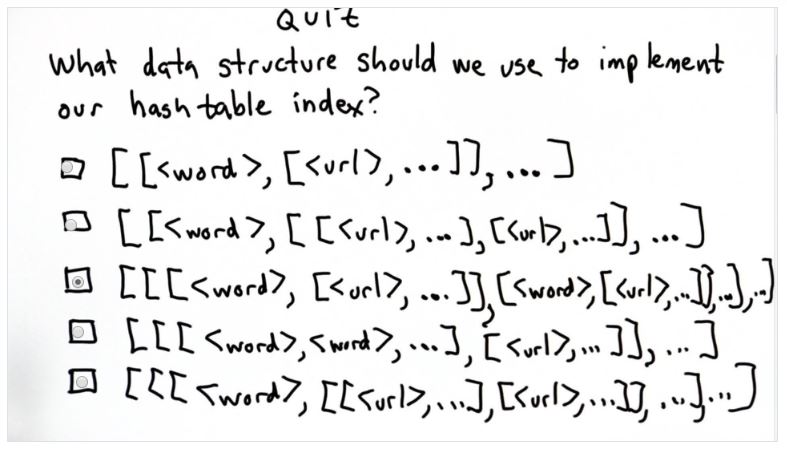 QUIZ
What data structure should we use to implement
our hash table index?
[[<word>, [<url>, ...]], ...]
[[<word>, [[<url>, ...], [<url>, ...]], ...]
[[[<word>, [<url>, ...]], [<word>, [<url>, ...]], ...], ...]
[[[<word>, <word>, ...], [<url>, ...]], ...]
[[[<word>, [[<url>, ...], [<url>, ...]], ...], ...]